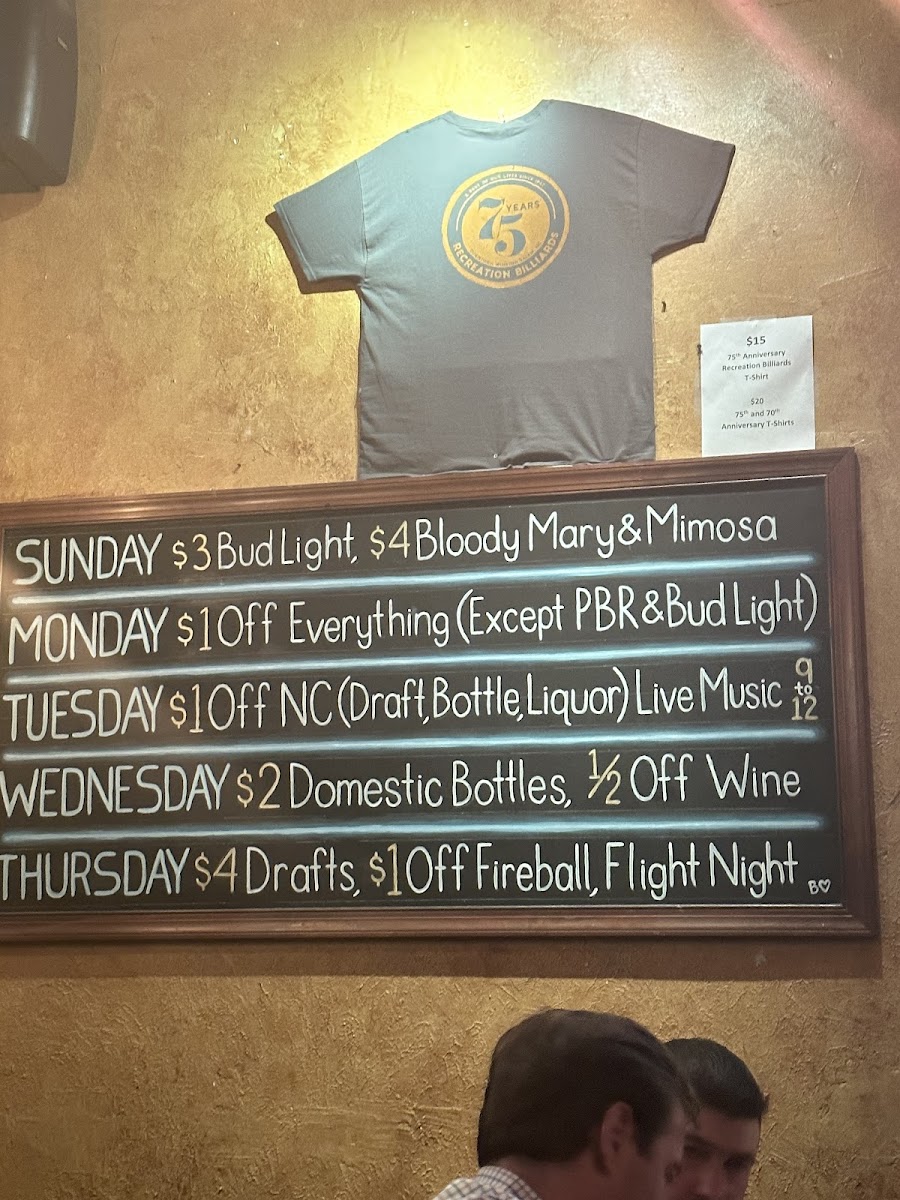 A PART OF OUR LIVES SINCE 1947
75 YEARS
RECREATION BILLIARDS
$15
75th Anniversary
Recreation Billiards
T-Shirt
$20
75th and 70th
Anniversary T-Shirts
SUNDAY $3 Bud Light, $4 Bloody Mary & Mimosa
MONDAY $1 Off Everything (Except PBR & Bud Light)
TUESDAY $1 Off NC (Draft, Bottle, Liquor) Live Music 9 to 12
WEDNESDAY $2 Domestic Bottles, ½ Off Wine
THURSDAY $4 Drafts, $1 Off Fireball, Flight Night
B♡